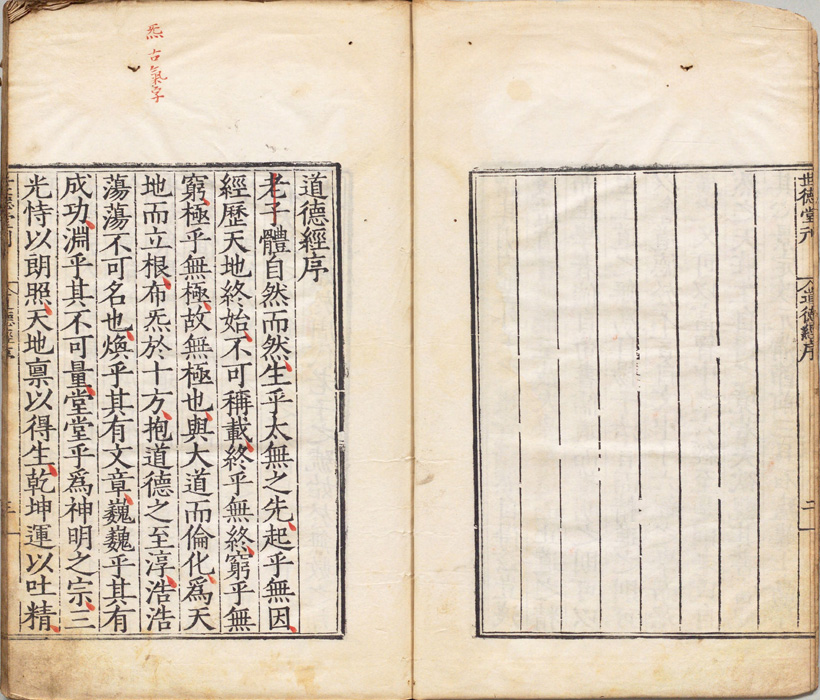 世德堂刊
道德經序
二
炁 古氣字
道德經序
老子體自然而然生乎太無之先起乎無因
經歷天地終始不可稱載終乎無終窮乎無
窮極乎無極故無極也與大道而倫化爲天
地而立根布炁於十方抱道德之至淳浩浩
蕩蕩不可名也煥乎其有文章巍巍乎其有
成功淵乎其不可量堂堂乎爲神明之宗三
光恃以朗照天地禀以得生乾坤運以吐精